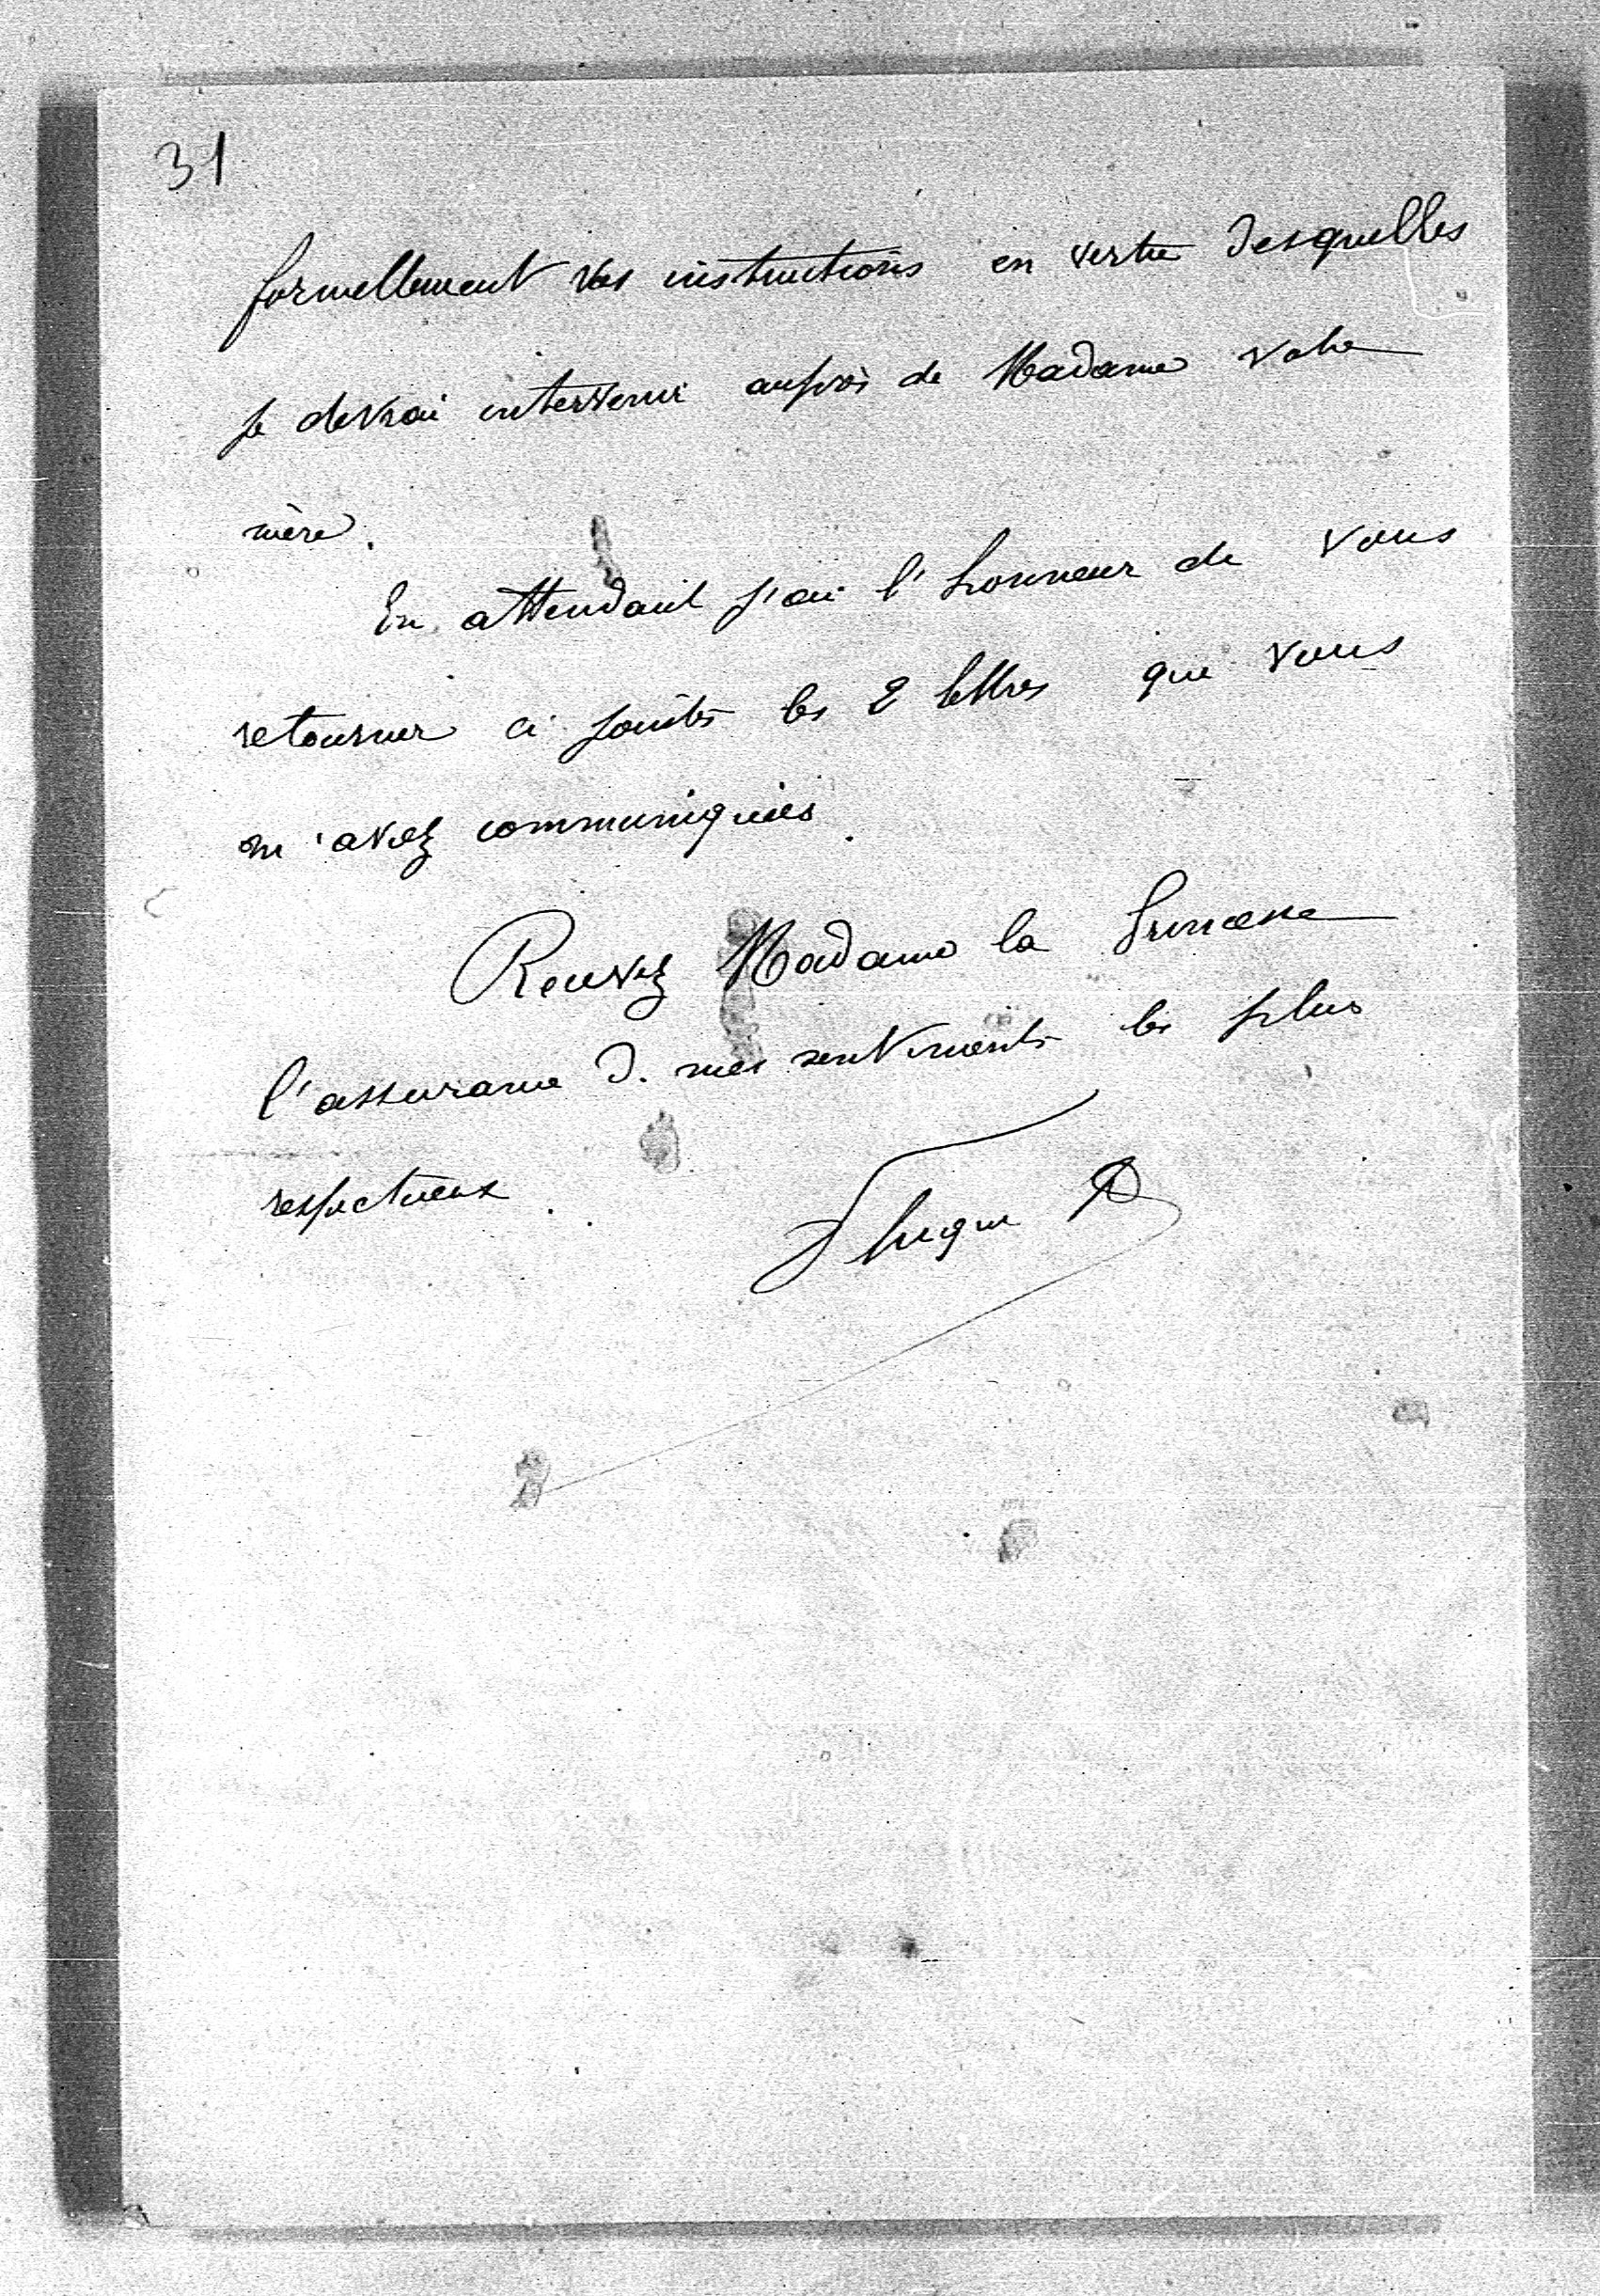 31
formellement vos instructions en vertu desquelles
je devrai intervenir auprès de Madame votre
mère.
En attendant j'ai l'honneur de vous
retourner ci jointes les 2 lettres que vous
m'avez communiquées.
Recevez Madame la Princesse
l'assurance de mes sentiments les plus
respectueux.